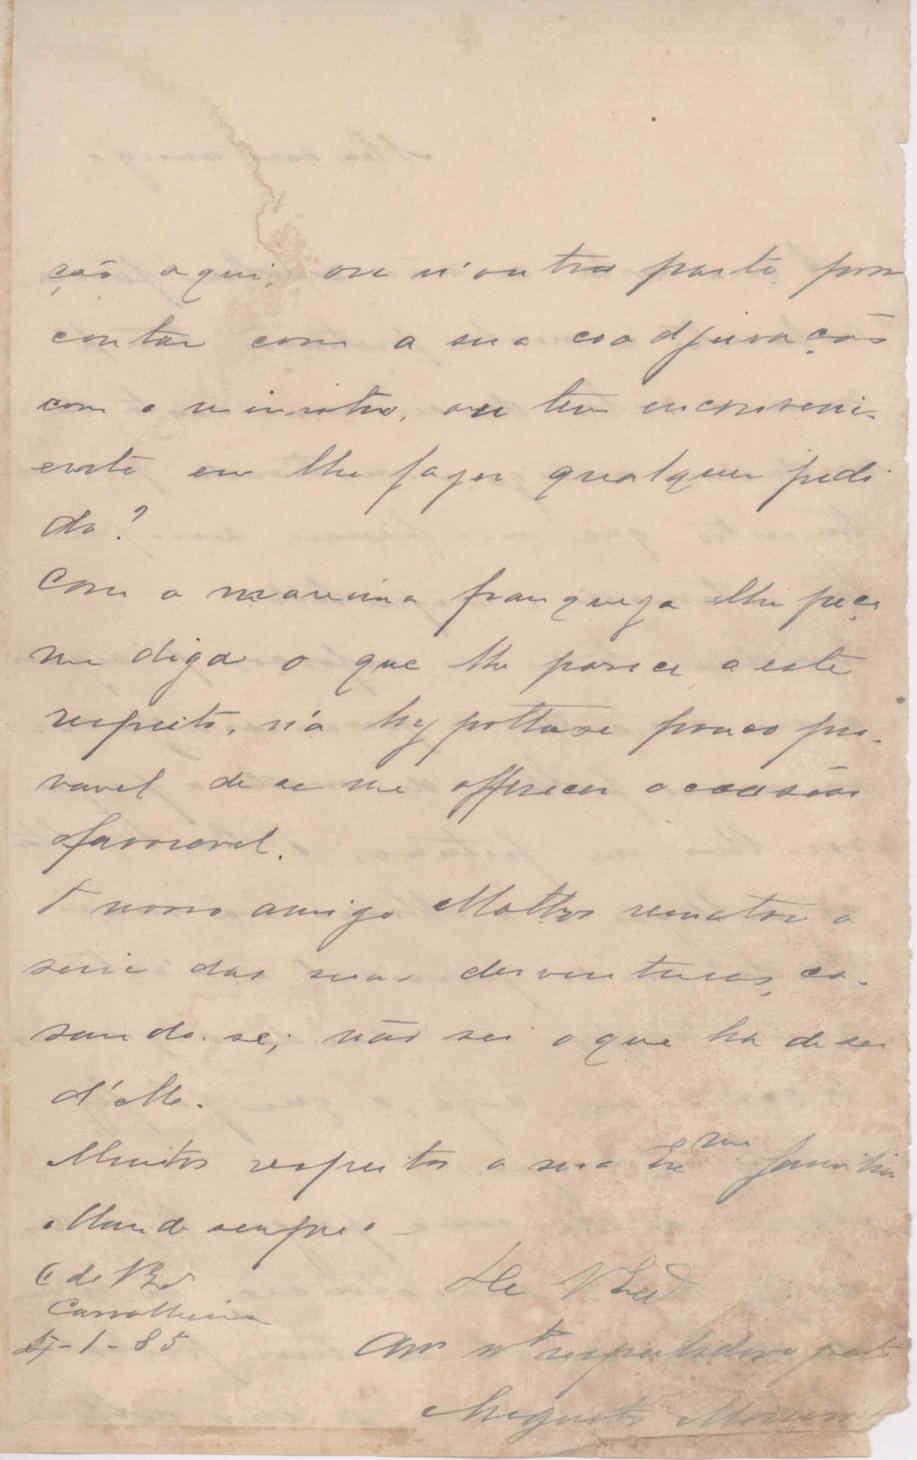 ção aqui, ou n'outra parte, posso
contar com a sua coadjuvação
com o ministro, ou tem inconveni-
ente em lhe fazer qualquer pedi
do?
Com a maxima franqueza lhe peço
me diga o que lhe parece a este
respeito, n'a hypothese pouco pro-
vavel de se me offerecer occasião
favoravel.
O nosso amigo Mattos rematou a
serie das suas desventuras, ca-
sando-se; não sei o que ha de ser
d'elle.
Muitos respeitos a sua Exma familia
e Mande sempre o
C de V
Carvalheira
De V
27-1-85
Amo mto respeitador e grato
Augusto